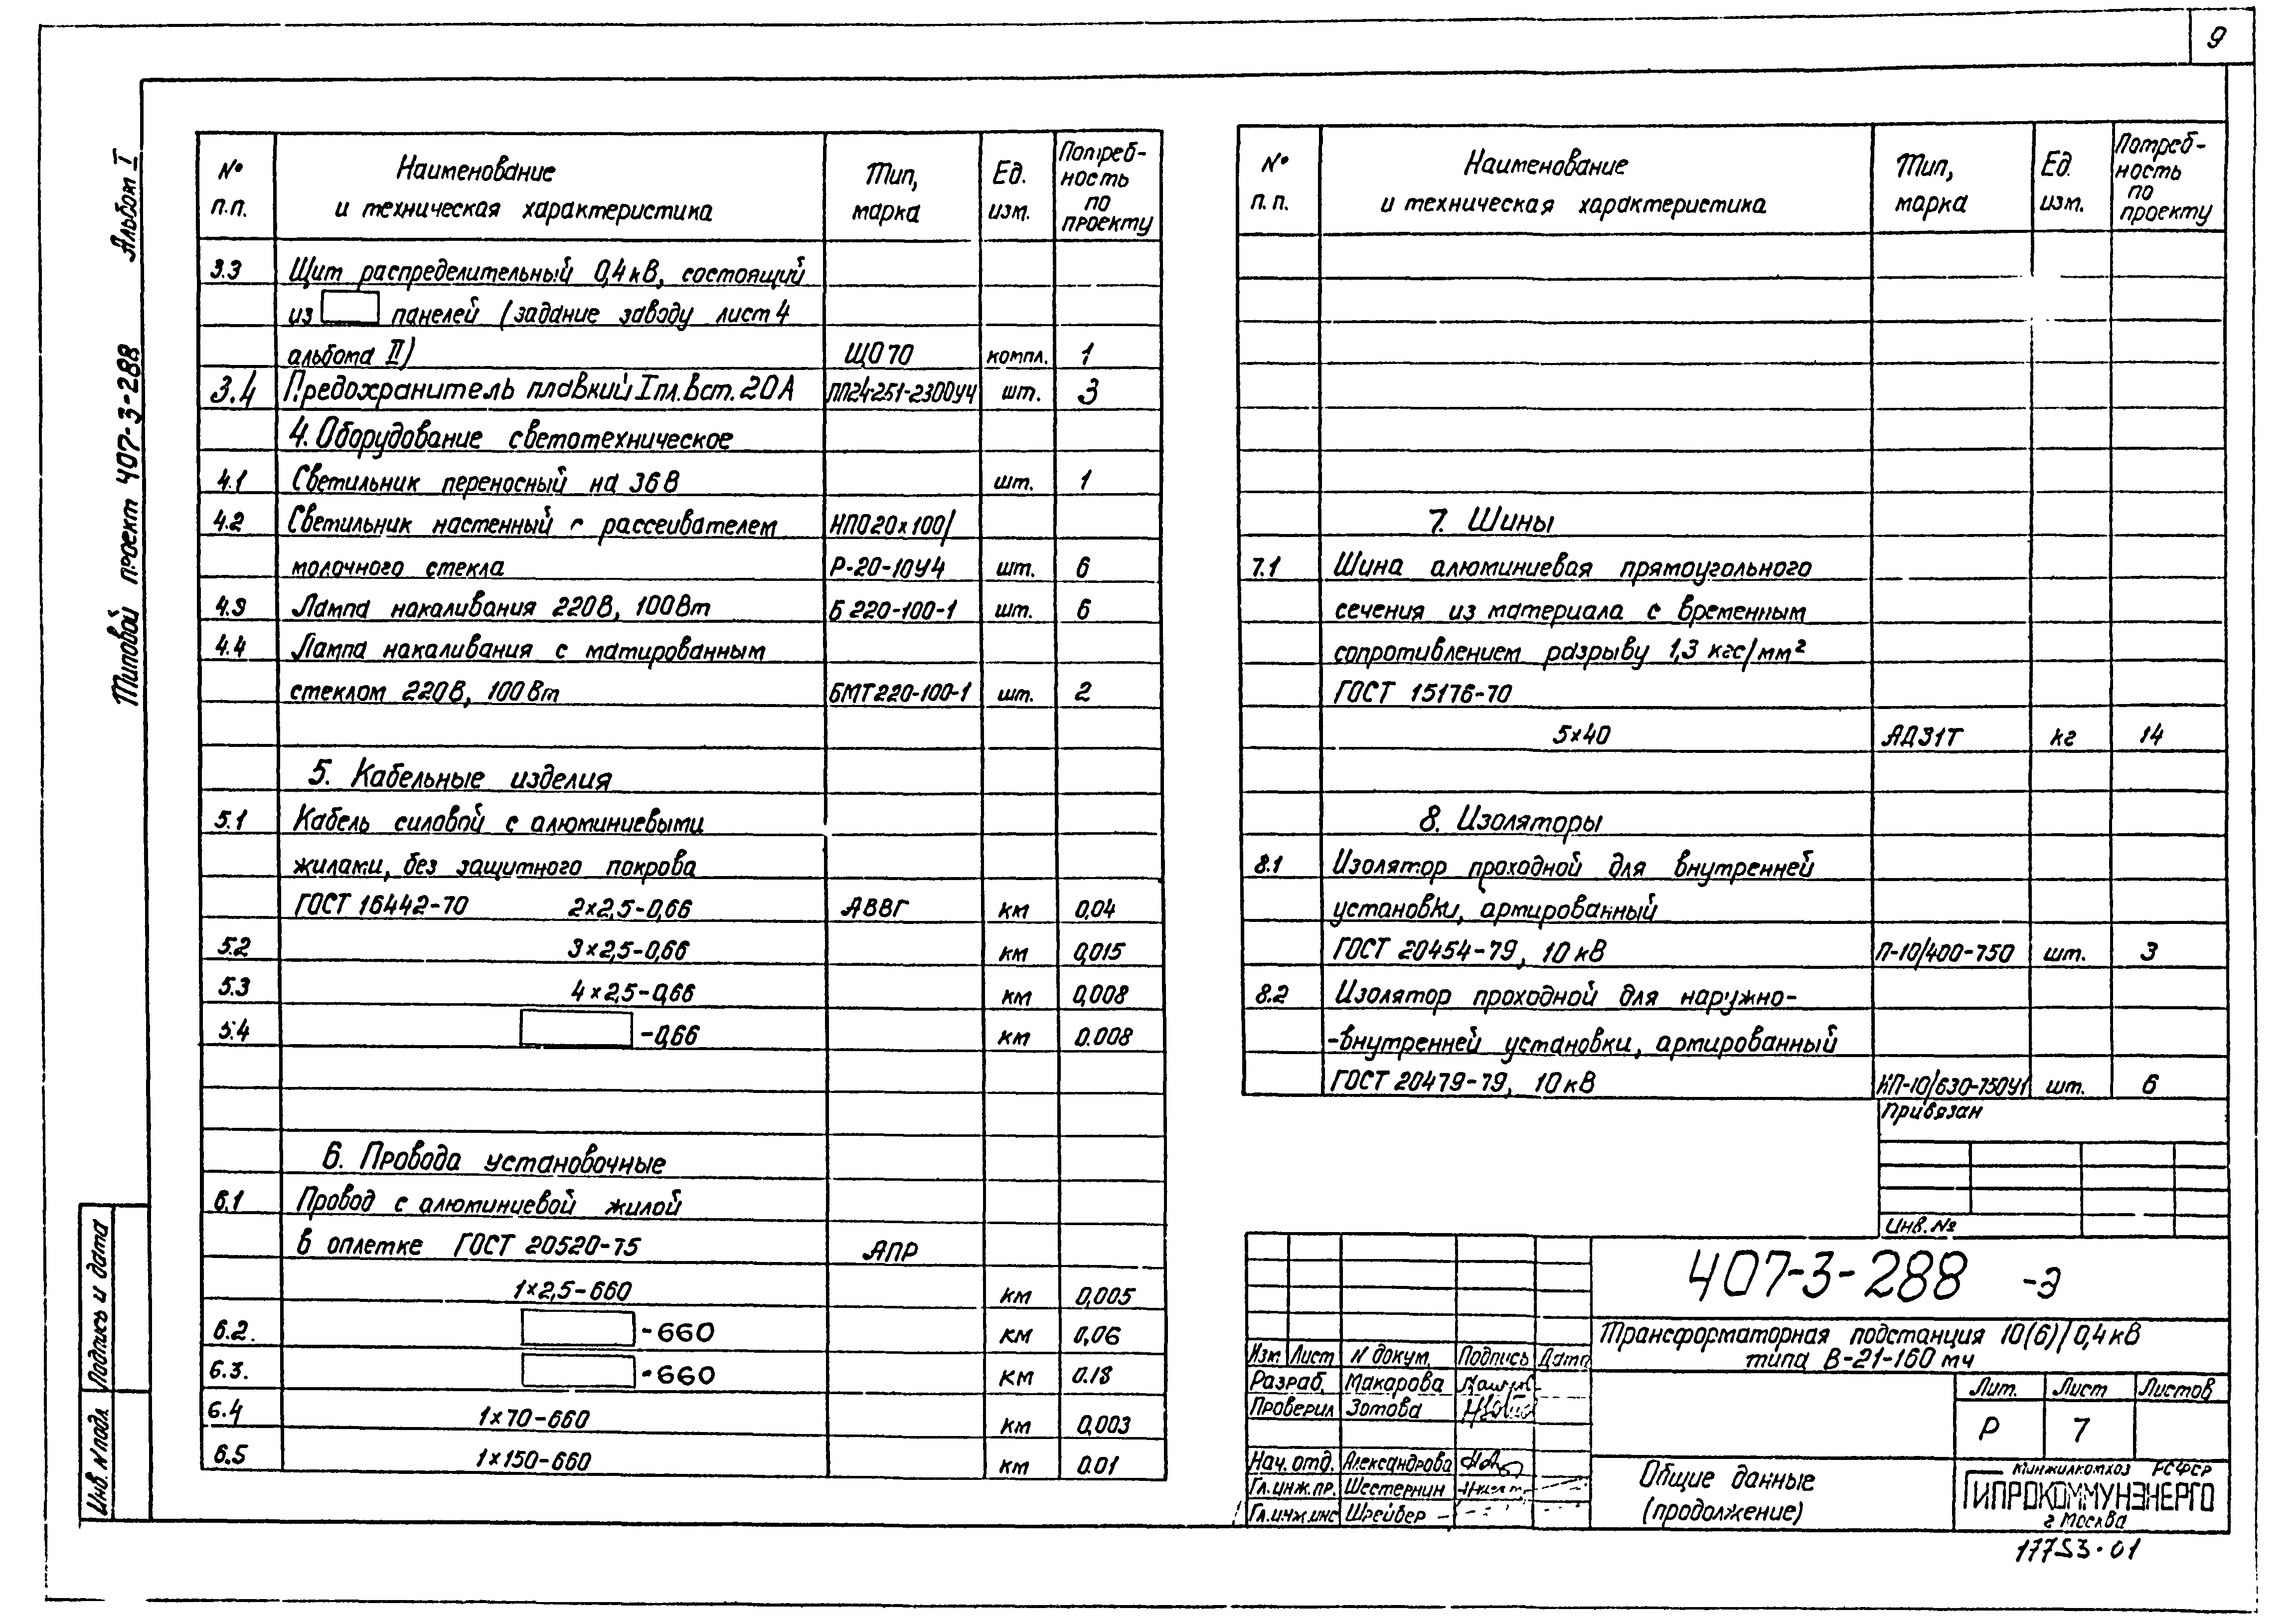 9
Типовой проект 407-3-288 Альбом I
№ п.п. Наименование и техническая характеристика Тип, марка Ед. изм. Потреб-ность по проекту
3.3 Щит распределительный 0,4 кВ, состоящий
из панелей (задание заводу лист 4
альбома II) ЩО 70 компл. 1
3.4 Предохранитель плавкий I пл. вст. 20 А ПП24-251-2300У4 шт. 3
4. Оборудование светотехническое
4.1 Светильник переносный на 36 В шт. 1
4.2 Светильник настенный с рассеивателем НПО20×100/
молочного стекла Р-20-10У4 шт. 6
4.3 Лампа накаливания 220 В, 100 Вт Б 220-100-1 шт. 6
4.4 Лампа накаливания с матированным
стеклом 220 В, 100 Вт БМТ 220-100-1 шт. 2
5. Кабельные изделия
5.1 Кабель силовой с алюминиевыми
жилами, без защитного покрова
ГОСТ 16442-70 2×2,5-0,66 АВВГ км 0,04
5.2 3×2,5-0,66 км 0,015
5.3 4×2,5-0,66 км 0,008
5.4 -0,66 км 0.008
6. Провода установочные
6.1 Провод с алюминиевой жилой
в оплетке ГОСТ 20520-75 АПР
1×2,5-660 км 0,005
6.2. -660 км 0,06
6.3. -660 км 0.18
6.4 1×70-660 км 0,003
6.5 1×150-660 км 0.01
№ п.п. Наименование и техническая характеристика Тип, марка Ед. изм. Потреб-ность по проекту
7. Шины
7.1 Шина алюминиевая прямоугольного
сечения из материала с временным
сопротивлением разрыву 1,3 кгс/мм²
ГОСТ 15176-70
5×40 АД31Т кг 14
8. Изоляторы
8.1 Изолятор проходной для внутренней
установки, армированный
ГОСТ 20454-79, 10 кВ П-10/400-750 шт. 3
8.2 Изолятор проходной для наружно-
-внутренней установки, армированный
ГОСТ 20479-79, 10 кВ ИП-10/630-750У1 шт. 6
Привязан
Инв. №
407-3-288 -Э
Трансформаторная подстанция 10(6)/0,4 кВ
типа В-21-160 мч
Изм Лист N докум. Подпись Дата
Разраб. Макарова
Проверил Зотова
Нач. отд. Александрова
Гл. инж. пр. Шестернин
Гл. инж. инс Шрейбер
Лит. Лист Листов
Р 7
Общие данные
(продолжение)
Минжилкомхоз РСФСР
ГИПРОКОММУНЭНЕРГО
г Москва
17753-01
Инв. N подл. Подпись и дата